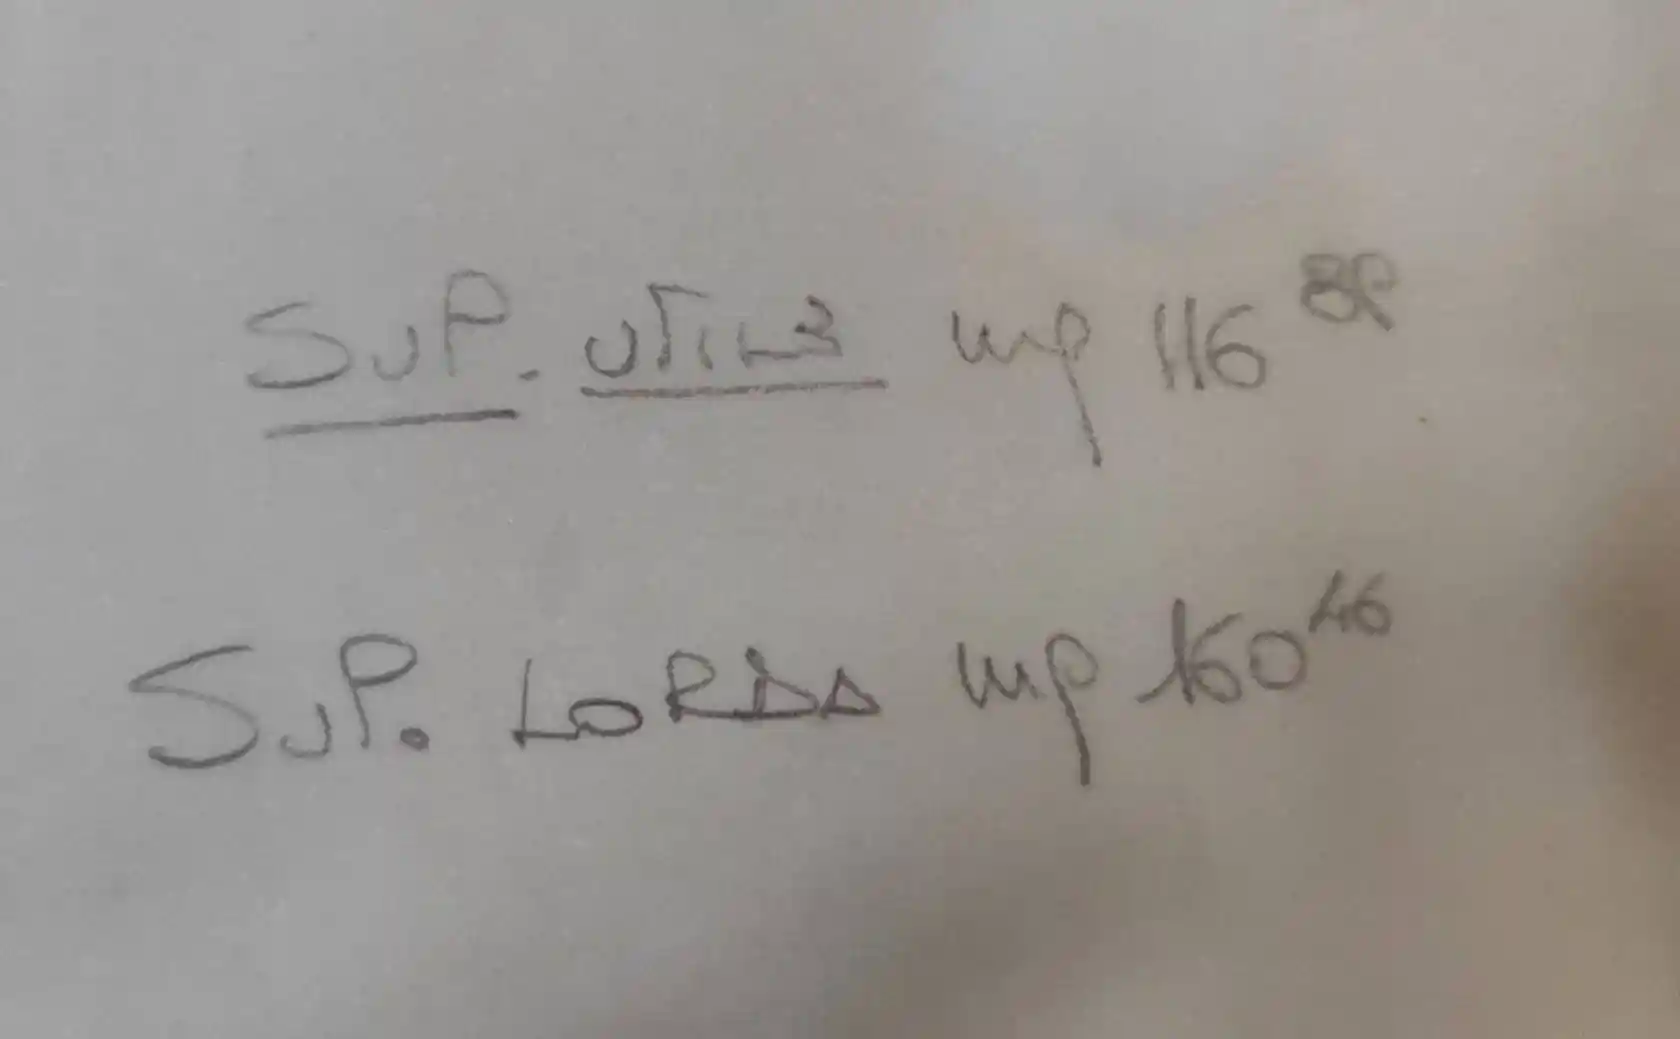 SUP. UTILE mq 116 89
SUP. LORDA mq 160 46